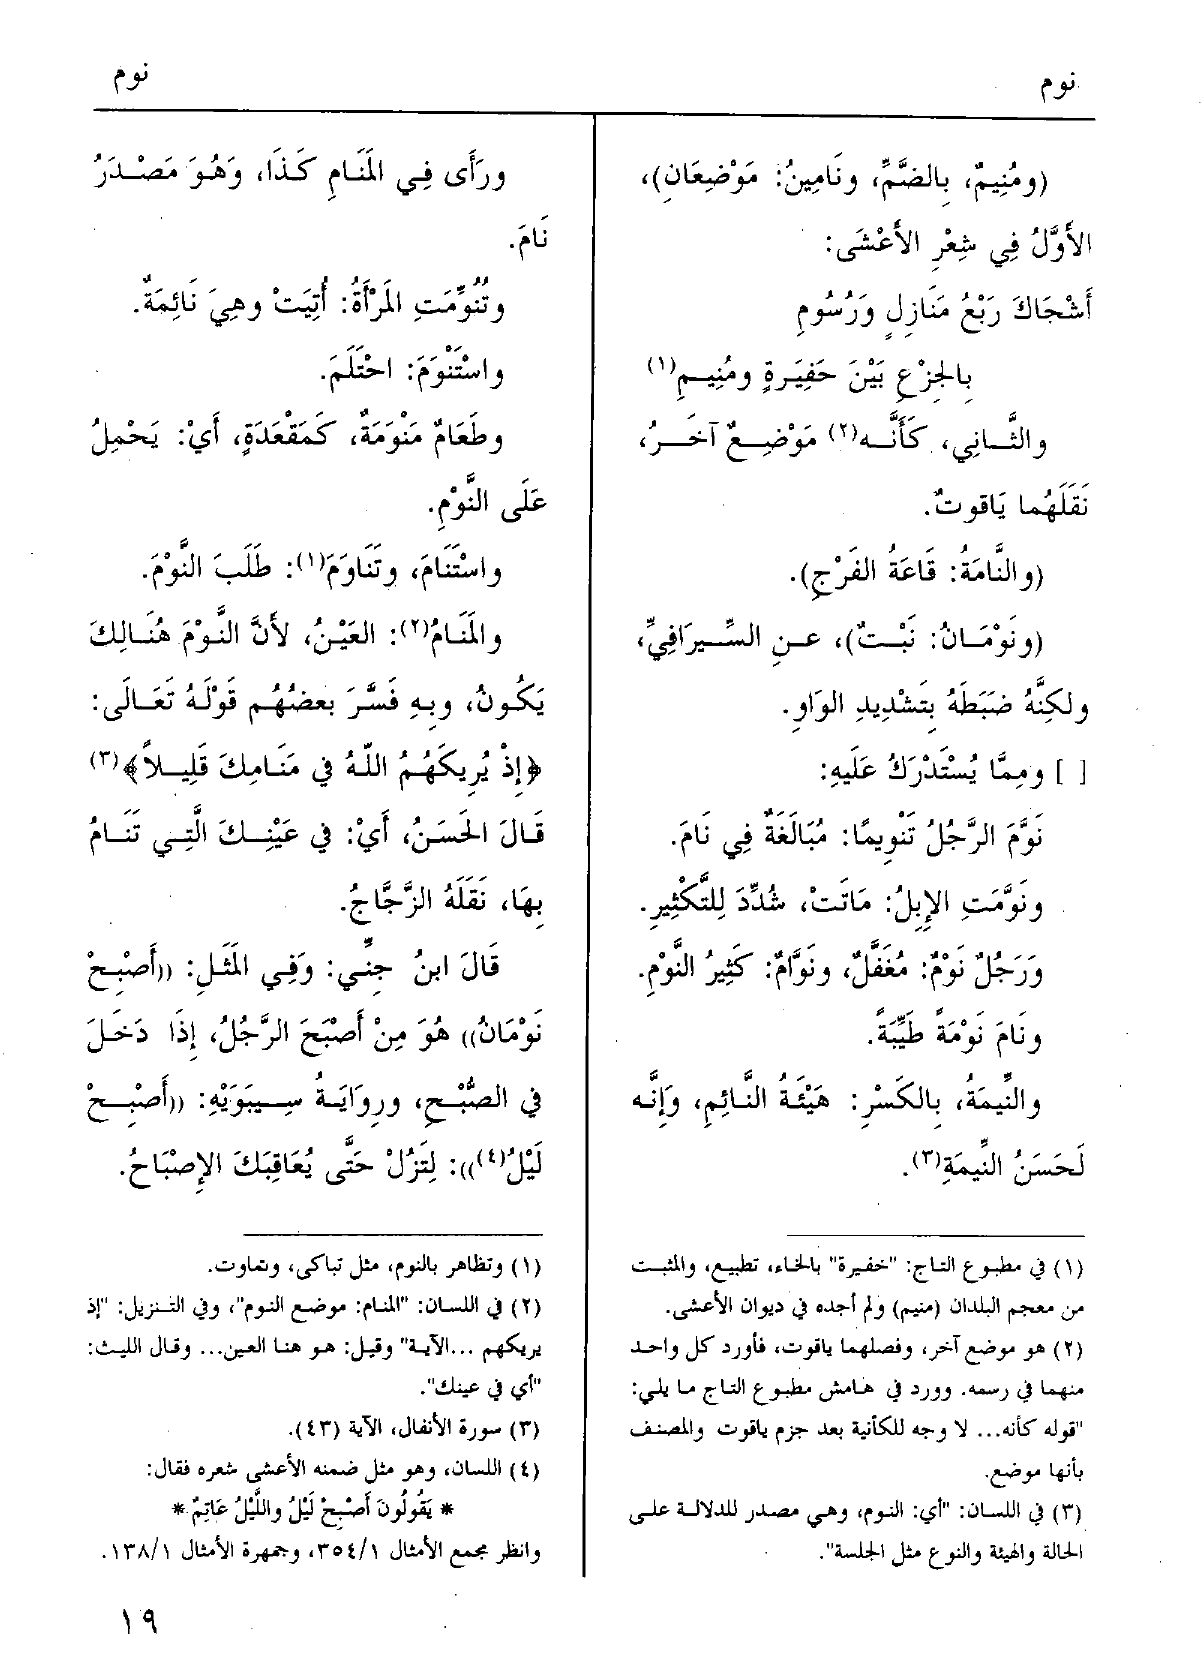 نوم
نوم
(ومُنِيمٌ، بِالضَّمِّ، ونَامِينُ: مَوْضِعَانِ)،
الأَوَّلُ فِي شِعْرِ الأَعْشَى:
أَشْجَاكَ رَبْعُ مَنَازِلٍ وَرُسُومِ
بِالجِزْعِ بَيْنَ حَفِيَرةٍ ومُنِيمِ(١)
والثَّانِي، كَأَنَّه(٢) مَوْضِعٌ آخَرُ،
نَقَلَهُما يَاقوتٌ.
(والنَّامَةُ: قَاعَةُ الفَرْجِ).
(ونَوْمَانُ: نَبْتٌ)، عنِ السِّيرَافِيِّ،
ولكِنَّهُ ضَبَطَهُ بِتَشْدِيدِ الوَاوِ.
[ ] ومِمَّا يُسْتَدْرَكُ عَلَيهِ:
نَوَّمَ الرَّجُلُ تَنْوِيمًا: مُبَالَغَةٌ فِي نَامَ.
ونَوَّمَتِ الإِبِلُ: مَاتَتْ، شُدِّدَ لِلتَّكْثِيرِ.
وَرَجُلٌ نَوْمٌ: مُغَفَّلٌ، ونَوَّامٌ: كَثِيرُ النَّوْمِ.
ونَامَ نَوْمَةً طَيِّبَةً.
والنِّيمَةُ، بِالكَسْرِ: هَيْئَةُ النَّائِمِ، وَإِنَّه
لَحَسَنُ النِّيمَةِ(٣).
(١) في مطبوع التاج: "خفيرة" بالخاء، تطبيع، والمثبت
من معجم البلدان (منيم) ولم أجده في ديوان الأعشى.
(٢) هو موضع آخر، وفصلهما ياقوت، فأورد كل واحد
منهما في رسمه. وورد في هامش مطبوع التاج ما يلي:
"قوله كأنه... لا وجه للكأنية بعد جزم ياقوت والمصنف
بأنها موضع.
(٣) في اللسان: "أي: النوم، وهي مصدر للدلالة على
الحالة والهيئة والنوع مثل الجلسة".
ورَأَى فِي المَنَامِ كَذَا، وَهُوَ مَصْدَرُ
نَامَ.
وتُنُوِّمَتِ المَرْأَةُ: أُتِيَتْ وهِيَ نَائِمَةٌ.
واسْتَنْوَمَ: احْتَلَمَ.
وطَعَامٌ مَنْوَمَةٌ، كَمَقْعَدَةٍ، أَيْ: يَحْمِلُ
عَلَى النَّوْمِ.
واسْتَنَامَ، وتَنَاوَمَ(١): طَلَبَ النَّوْمَ.
والمَنَامُ(٢): العَيْنُ، لأَنَّ النَّوْمَ هُنَالِكَ
يَكُونُ، وبِهِ فَسَّرَ بعضُهُم قَوْلَهُ تَعَالَى:
﴿إِذْ يُرِيكَهُمُ اللّهُ في مَنَامِكَ قَلِيلاً﴾(٣)
قَالَ الحَسَنُ، أَيْ: في عَيْنِكَ الَّتِي تَنَامُ
بِهَا، نَقَلَهُ الزَّجَّاجُ.
قَالَ ابنُ جِنِّي: وَفِي المَثَلِ: ((أَصْبِحْ
نَوْمَانُ)) هُوَ مِنْ أَصْبَحَ الرَّجُلُ، إِذَا دَخَلَ
في الصُّبْحِ، ورِوَايَةُ سِيبَوَيْهِ: ((أَصْبِحْ
لَيْلُ(٤))): لِتَزُلْ حَتَّى يُعَاقِبَكَ الإِصْبَاحُ.
(١) وتظاهر بالنوم، مثل تباكى، وتماوت.
(٢) في اللسان: "المنام: موضع النوم"، وفي التنزيل: "إذ
يريكهم ...الآية" وقيل: هو هنا العين... وقال الليث:
"أي في عينك".
(٣) سورة الأنفال، الآية (٤٣).
(٤) اللسان، وهو مثل ضمنه الأعشى شعره فقال:
* يَقُولُونَ أَصْبِحْ لَيْلُ واللَّيْلُ عَاتِمٌ *
وانظر مجمع الأمثال ٣٥٤/١، وجمهرة الأمثال ١٣٨/١.
١٩